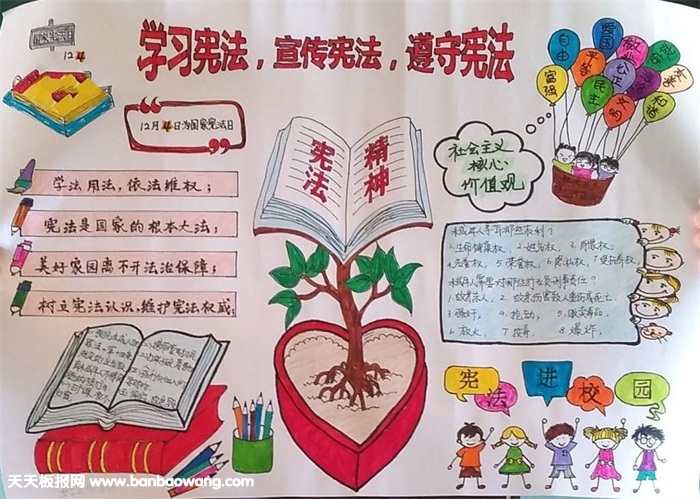 国家宪法日
12.4
学习宪法，宣传宪法，遵守宪法
12月4日为国家宪法日
学法用法，依法维权；
宪法是国家的根本大法；
美好家园离不开法治保障；
树立宪法认识，维护宪法权威；
宪法
精神
社会主义
核心
价值观
自由
爱国
平等
公正
富强
民主
文明
和谐
未成年人享有哪些权利？
1.生命健康权、2.姓名权、3.肖像权、
4.名誉权、5.荣誉权、6.隐私权、7.受抚养权
1.故意杀人、2.故意伤害致人重伤或死亡、
3.强奸、4.抢劫、5.贩卖毒品
6.放火、7.投毒、8.爆炸、
宪法进校园
天天板报网 www.banbaowang.com